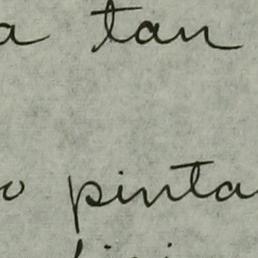 a tan
o pinta